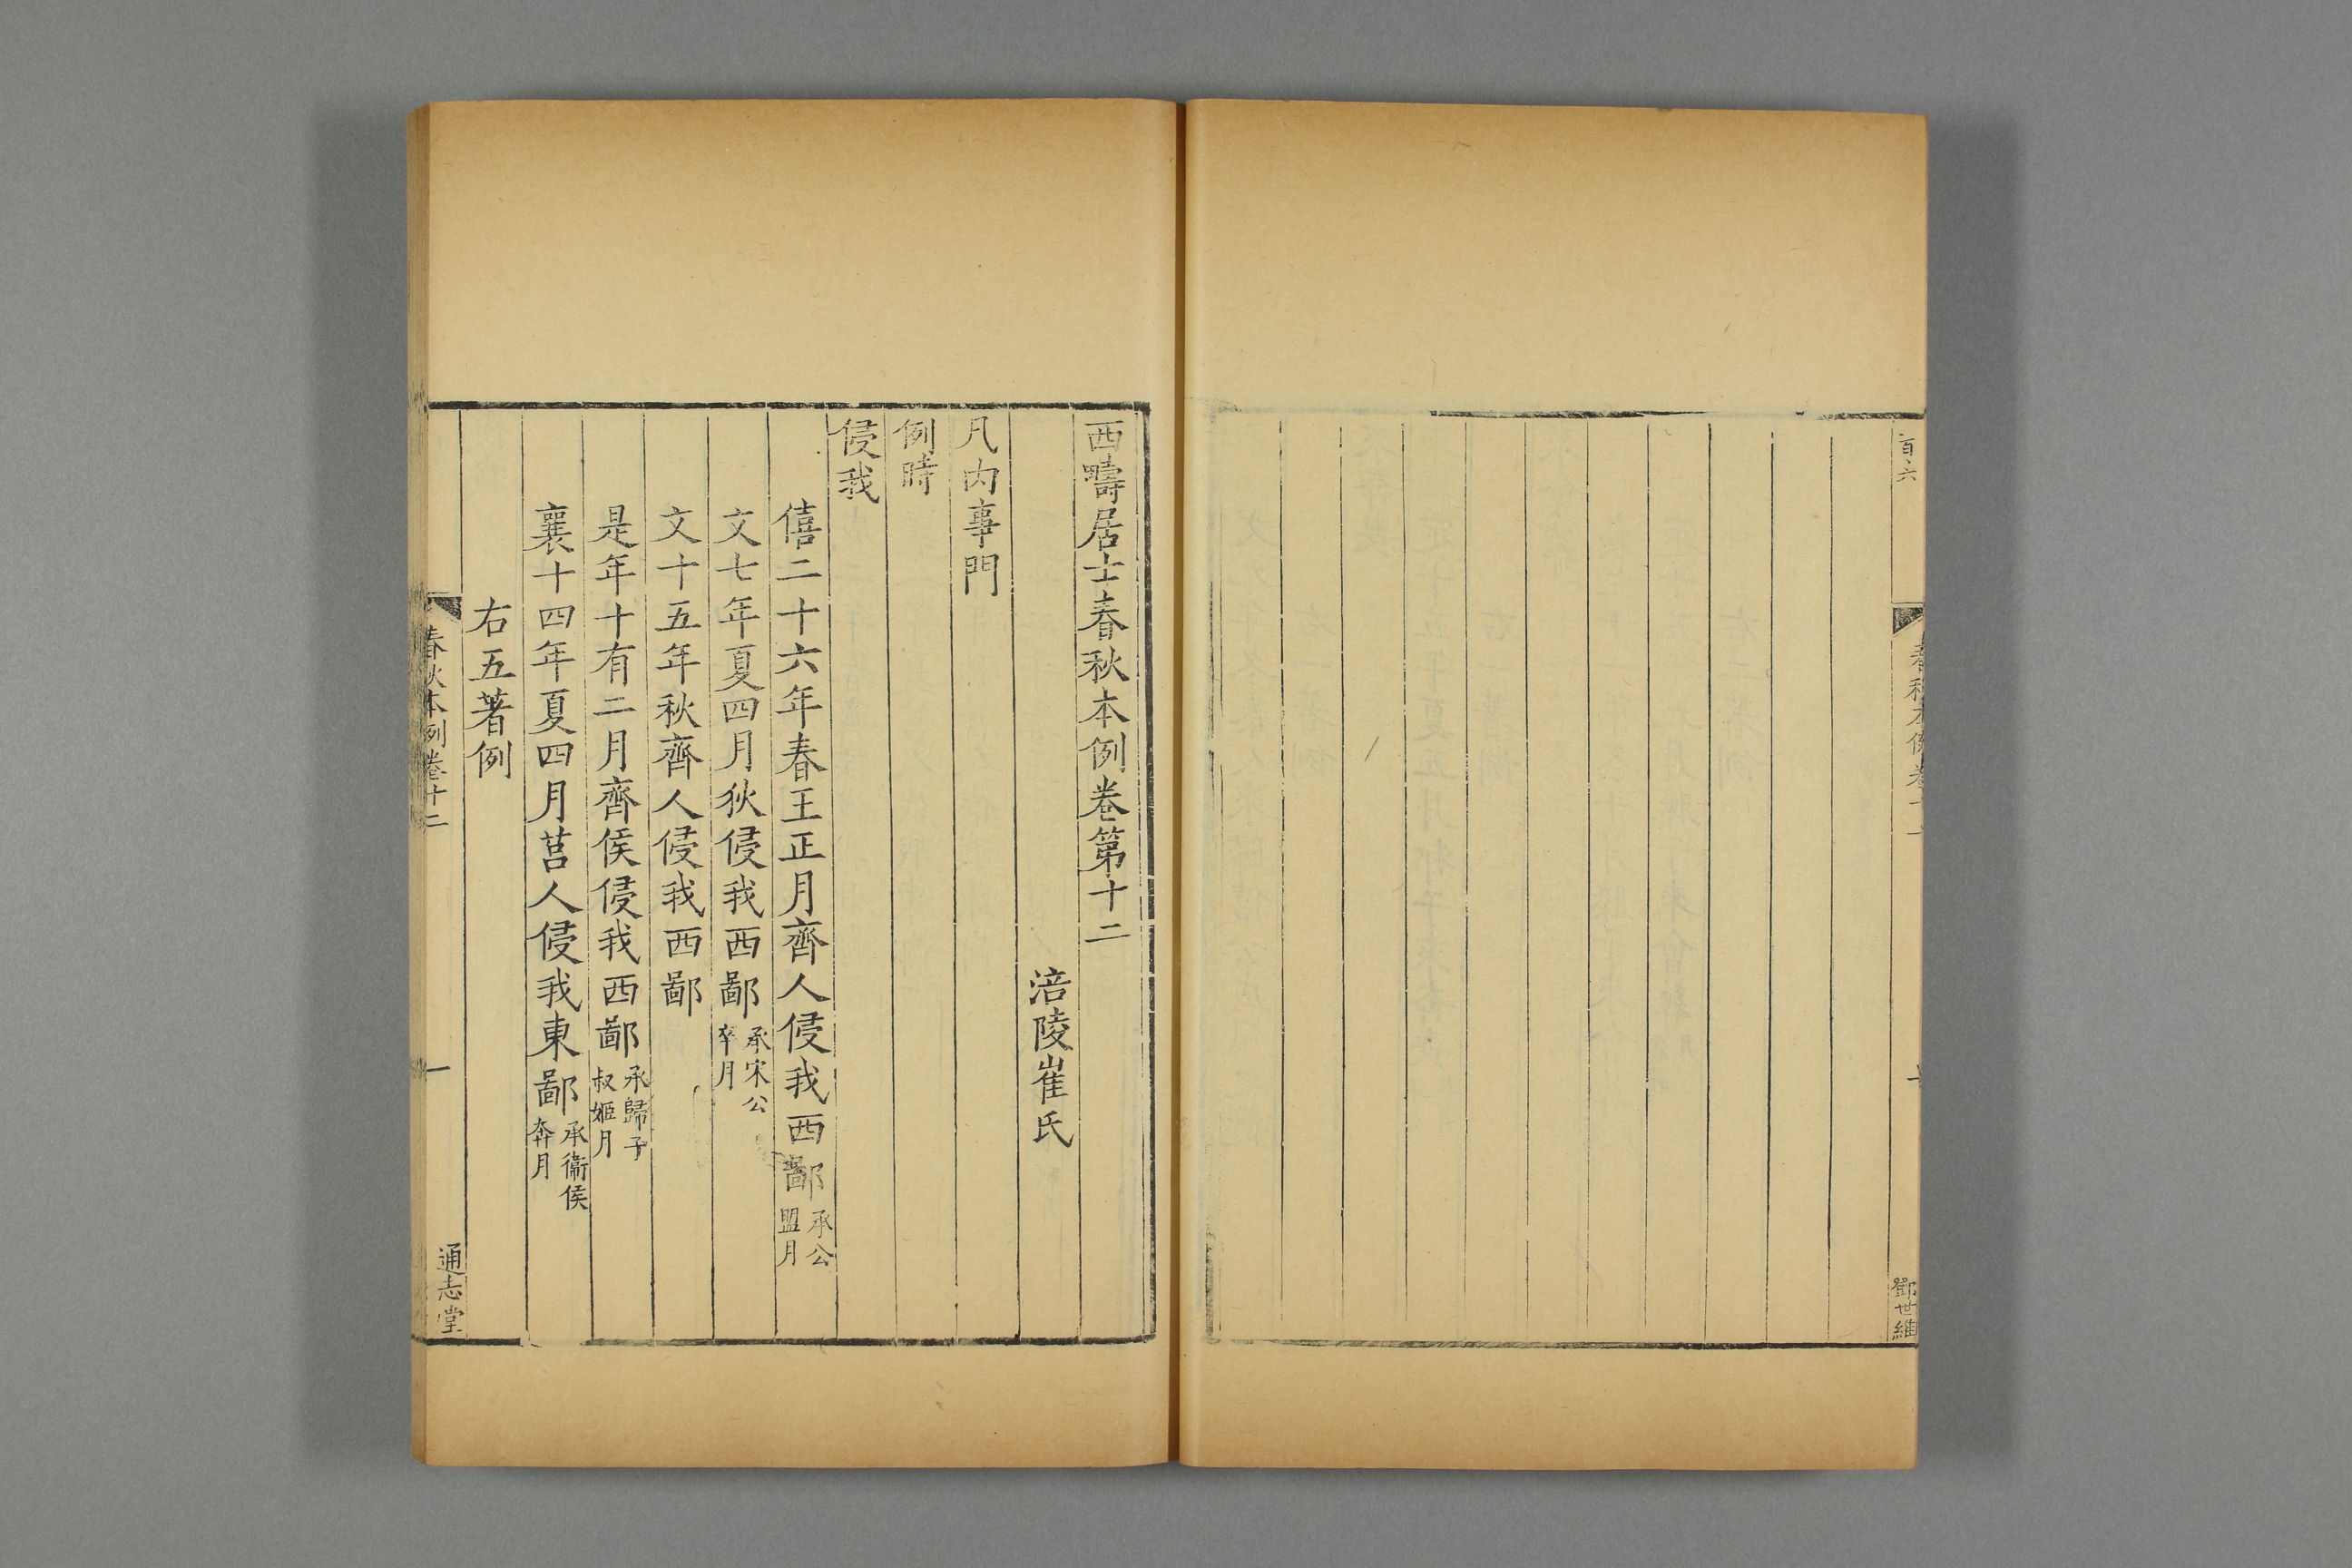 百六
春秋本例卷十一
十
鄧世維
西疇居士春秋本例卷第十二
涪陵崔氏
凡內事門
例時
侵我
僖二十六年春王正月齊人侵我西鄙承公盟月
文七年夏四月狄侵我西鄙承宋公卒月
文十五年秋齊人侵我西鄙
是年十有二月齊侯侵我西鄙承歸子叔姬月
襄十四年夏四月莒人侵我東鄙承衞侯奔月
右五著例
春秋本例卷十二
一
通志堂